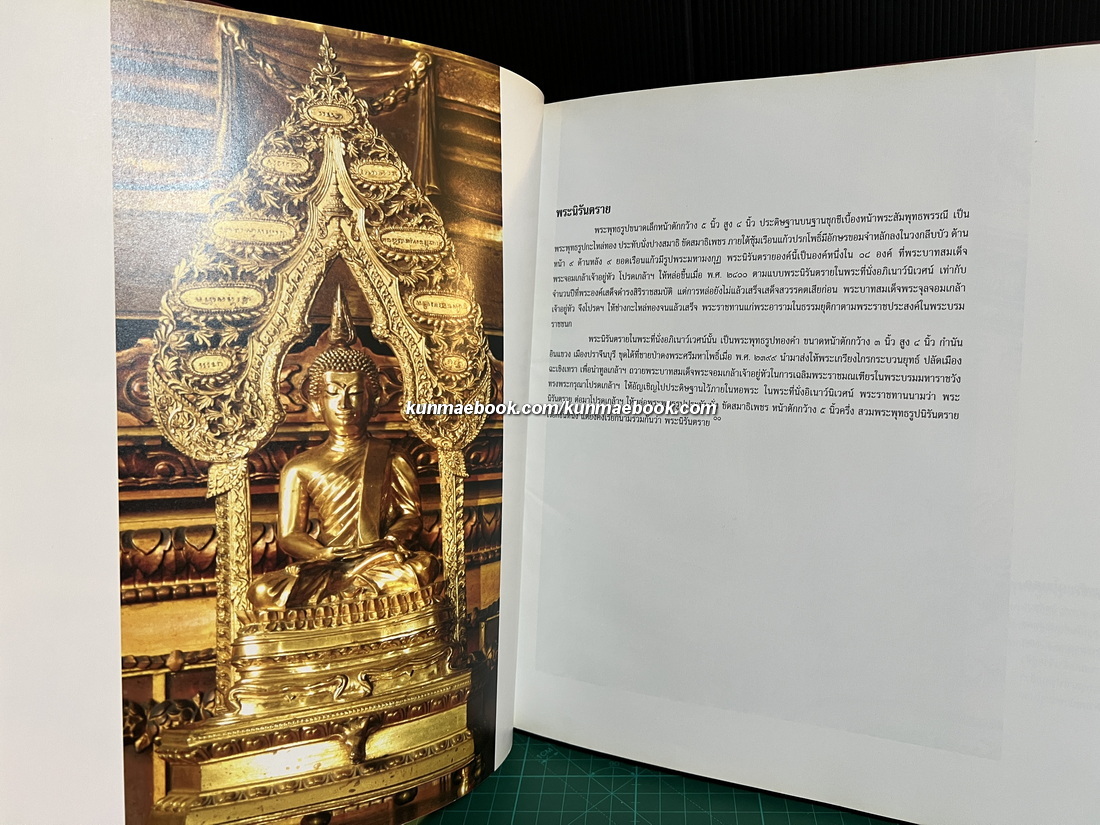 พระนิรันตราย
พระพุทธรูปขนาดเล็กหน้าตักกว้าง ๕ นิ้ว สูง ๘ นิ้ว ประดิษฐานบนฐานชุกชีเบื้องหน้าพระสัมพุทธพรรณี เป็น
พระพุทธรูปกะไหล่ทอง ประทับนั่งปางสมาธิ ขัดสมาธิเพชร ภายใต้ซุ้มเรือนแก้วปรกโพธิ์มีอักษรขอมจำหลักลงในวงกลีบบัว ด้าน
หน้า ๙ ด้านหลัง ๙ ยอดเรือนแก้วมีรูปพระมหามงกุฎ พระนิรันตรายองค์นี้เป็นองค์หนึ่งใน ๑๘ องค์ ที่พระบาทสมเด็จ
พระจอมเกล้าเจ้าอยู่หัว โปรดเกล้าฯ ให้หล่อขึ้นเมื่อ พ.ศ. ๒๔๐๐ ตามแบบพระนิรันตรายในพระที่นั่งอภิเนาว์นิเวศน์ เท่ากับ
จำนวนปีที่พระองค์เสด็จดำรงสิริราชสมบัติ แต่การหล่อยังไม่แล้วเสร็จเสด็จสวรรคตเสียก่อน พระบาทสมเด็จพระจุลจอมเกล้า
เจ้าอยู่หัว จึงโปรดฯ ให้ช่างกะไหล่ทองจนแล้วเสร็จ พระราชทานแก่พระอารามในธรรมยุติกาตามพระราชประสงค์ในพระบรม
ราชชนก
พระนิรันตรายในพระที่นั่งอภิเนาว์เวศน์นั้น เป็นพระพุทธรูปทองคำ ขนาดหน้าตักกว้าง ๓ นิ้ว สูง ๔ นิ้ว กำนัน
อินแขวง เมืองปราจีนบุรี ขุดได้ที่ชายป่าดงพระศรีมหาโพธิ์เมื่อ พ.ศ. ๒๓๙๙ นำมาส่งให้พระเกรียงไกรกระบวนยุทธ์ ปลัดเมือง
ฉะเชิงเทรา เพื่อนำทูลเกล้าฯ ถวายพระบาทสมเด็จพระจอมเกล้าเจ้าอยู่หัวในการเฉลิมพระราชมณเฑียรในพระบรมมหาราชวัง
ทรงพระกรุณาโปรดเกล้าฯ ให้อัญเชิญไปประดิษฐานไว้ภายในหอพระ ในพระที่นั่งอิเนาว์นิเวศน์ พระราชทานนามว่า พระ
นิรันตราย ต่อมาโปรดเกล้าฯ ขัดสมาธิเพชร หน้าตักกว้าง ๕ นิ้วครึ่ง สวมพระพุทธรูปนิรันตราย
แต่ยังคงเรียกนามรวมกันว่า พระนิรันตราย ๑๐
kunmaebook.com/kunmaebook.com